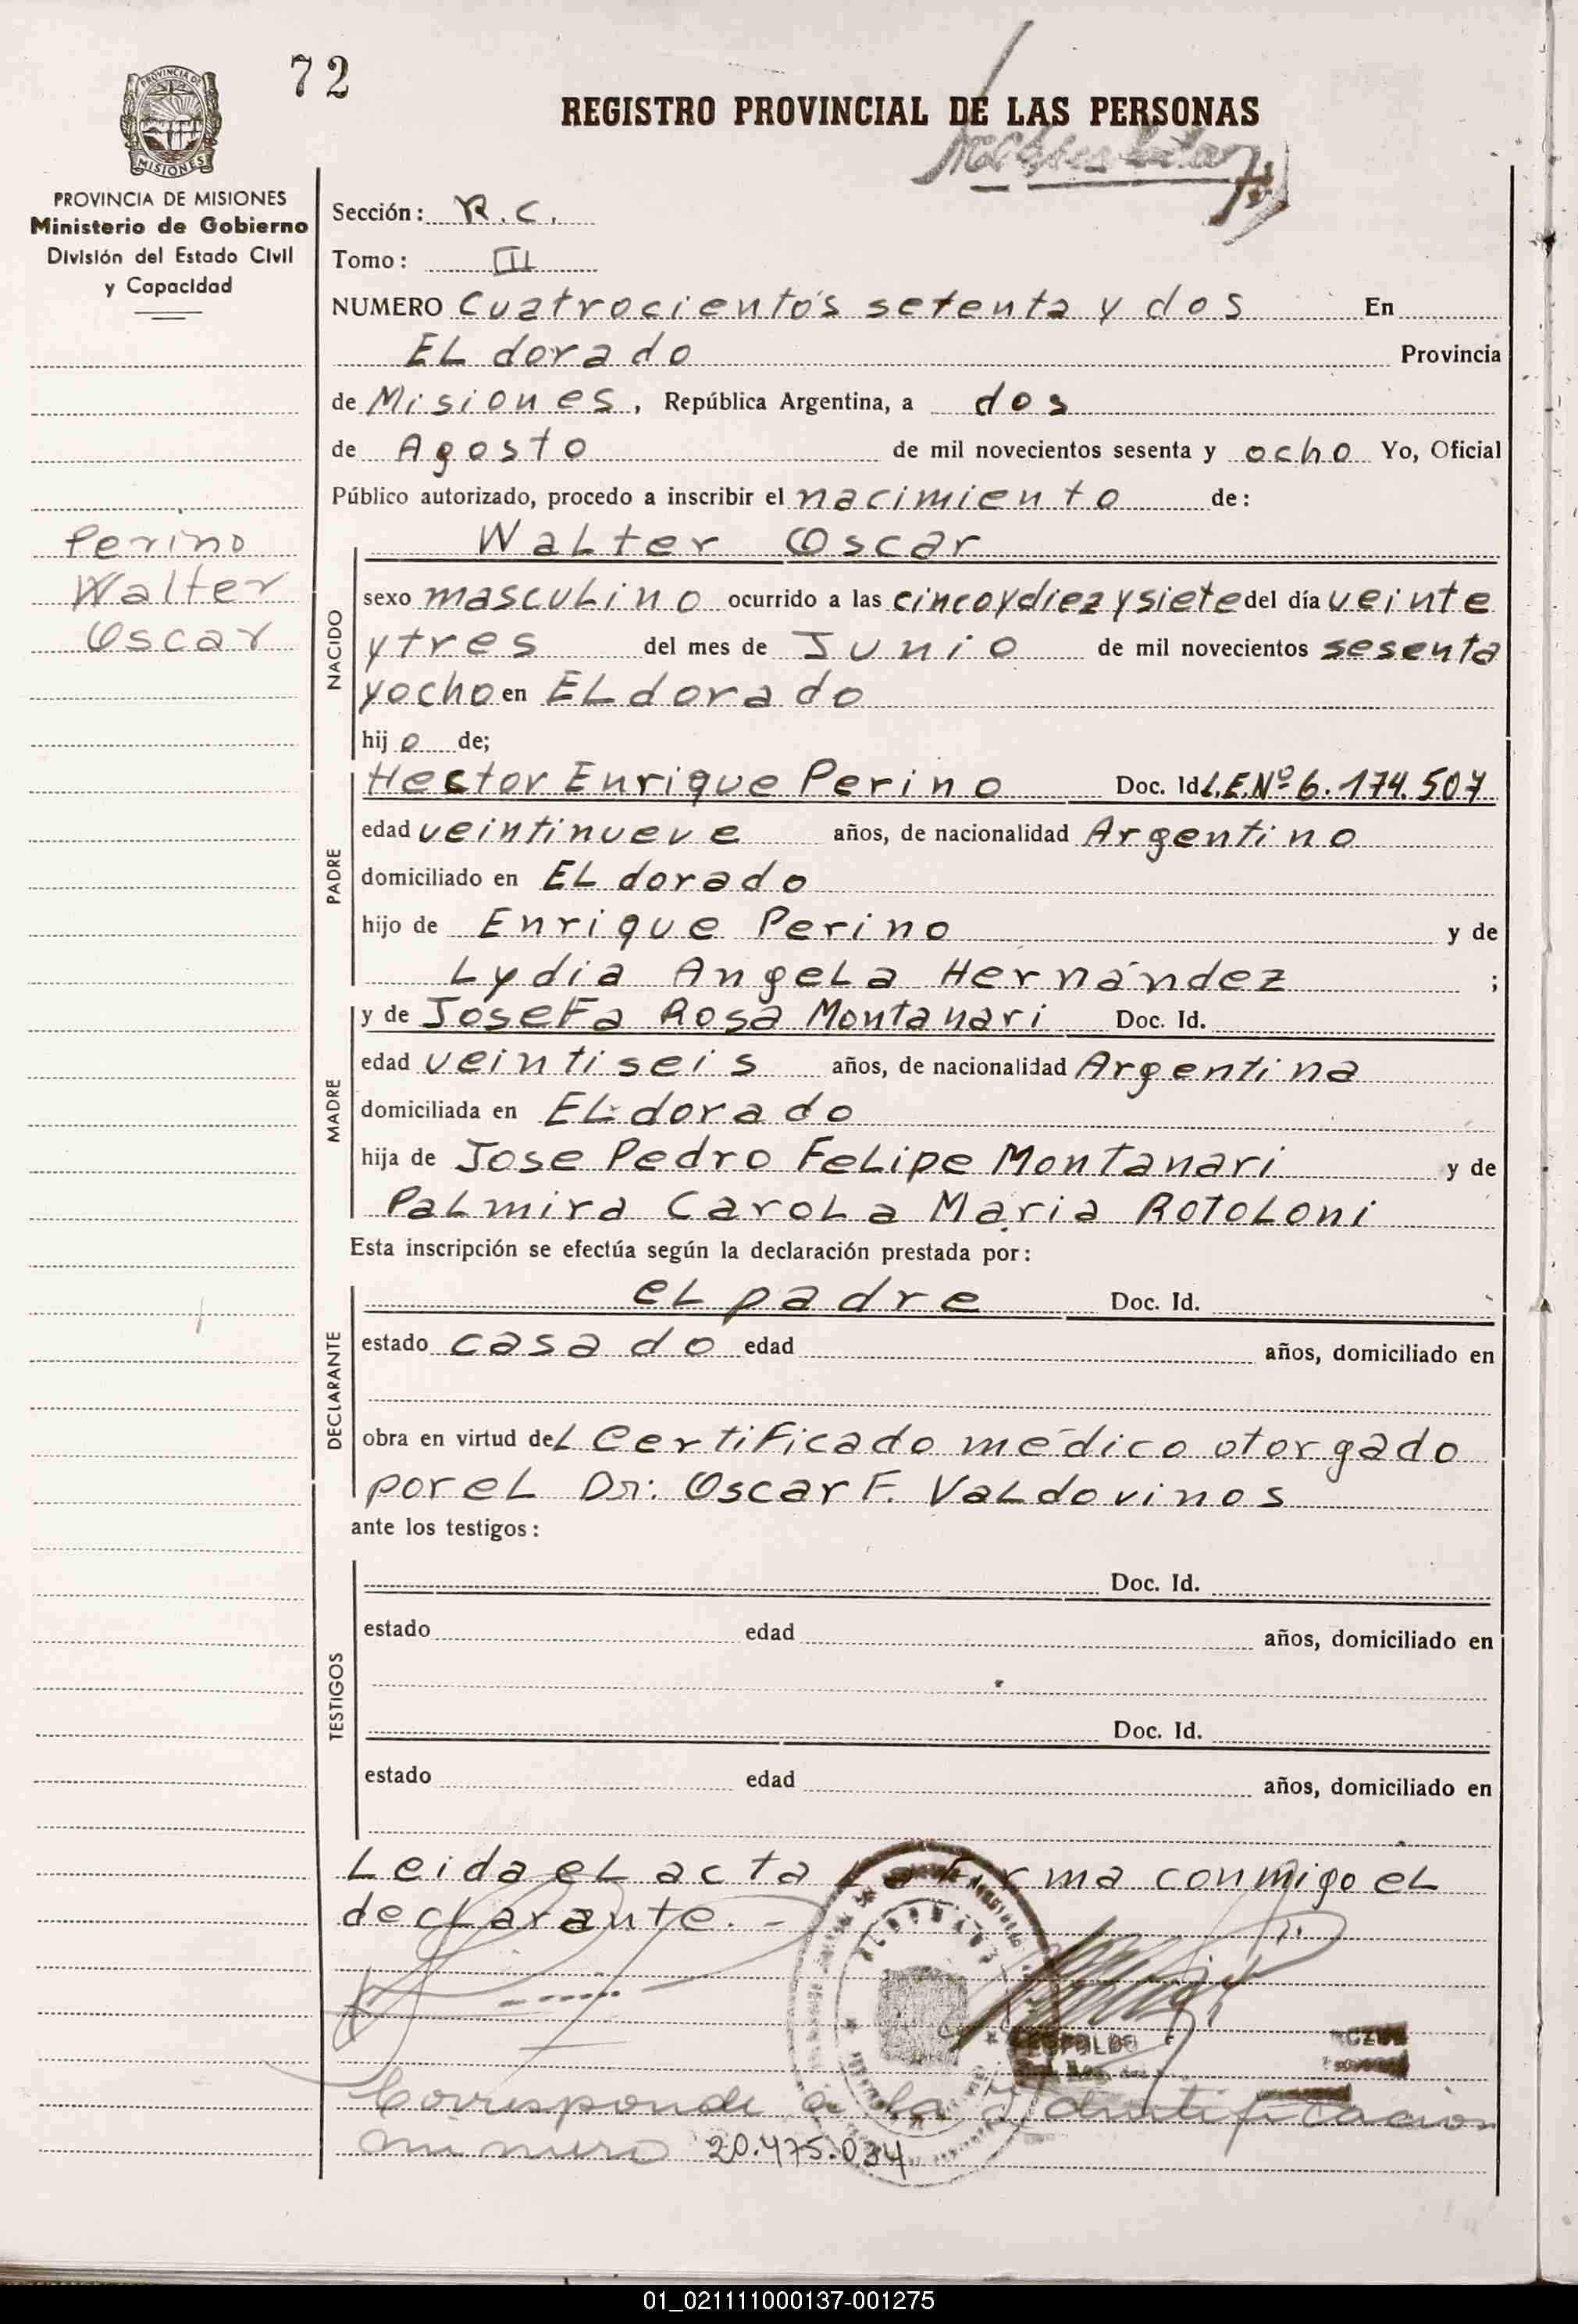 72
REGISTRO PROVINCIAL DE LAS PERSONAS
PROVINCIA DE
MISIONES
PROVINCIA DE MISIONES
Ministerio de Gobierno
División del Estado Civil
y Capacidad
Perino
Walter
Oscar
Sección: R.C.
Tomo: III
NUMERO Cuatrocientos setenta y dos En
ELdorado Provincia
de Misiones, República Argentina, a dos
de Agosto de mil novecientos sesenta y ocho Yo, Oficial
Público autorizado, procedo a inscribir el nacimiento de:
Walter Oscar
NACIDO
sexo masculino ocurrido a las cinco y diez y siete del día veinte
y tres del mes de Junio de mil novecientos sesenta
y ocho en ELdorado
hijo de;
PADRE
Hector Enrique Perino Doc. Id L.E.Nº 6.174.507
edad veintinueve años, de nacionalidad Argentino
domiciliado en ELdorado
hijo de Enrique Perino y de
Lydia Angela Hernández ;
MADRE
y de Josefa Rosa Montanari Doc. Id.
edad veintiseis años, de nacionalidad Argentina
domiciliada en ELdorado
hija de Jose Pedro Felipe Montanari y de
Palmira Carola Maria Rotoloni
Esta inscripción se efectúa según la declaración prestada por:
DECLARANTE
el padre Doc. Id.
estado casado edad años, domiciliado en
obra en virtud del Certificado médico otorgado
por el Dr: Oscar F. Valdovinos
ante los testigos:
TESTIGOS
Doc. Id.
estado edad años, domiciliado en
Doc. Id.
estado edad años, domiciliado en
Leida el acta la firma conmigo el
declarante. -
LEOPOLDO
Corresponde a la identificacion
numero 20.475.034
01_021111000137-001275